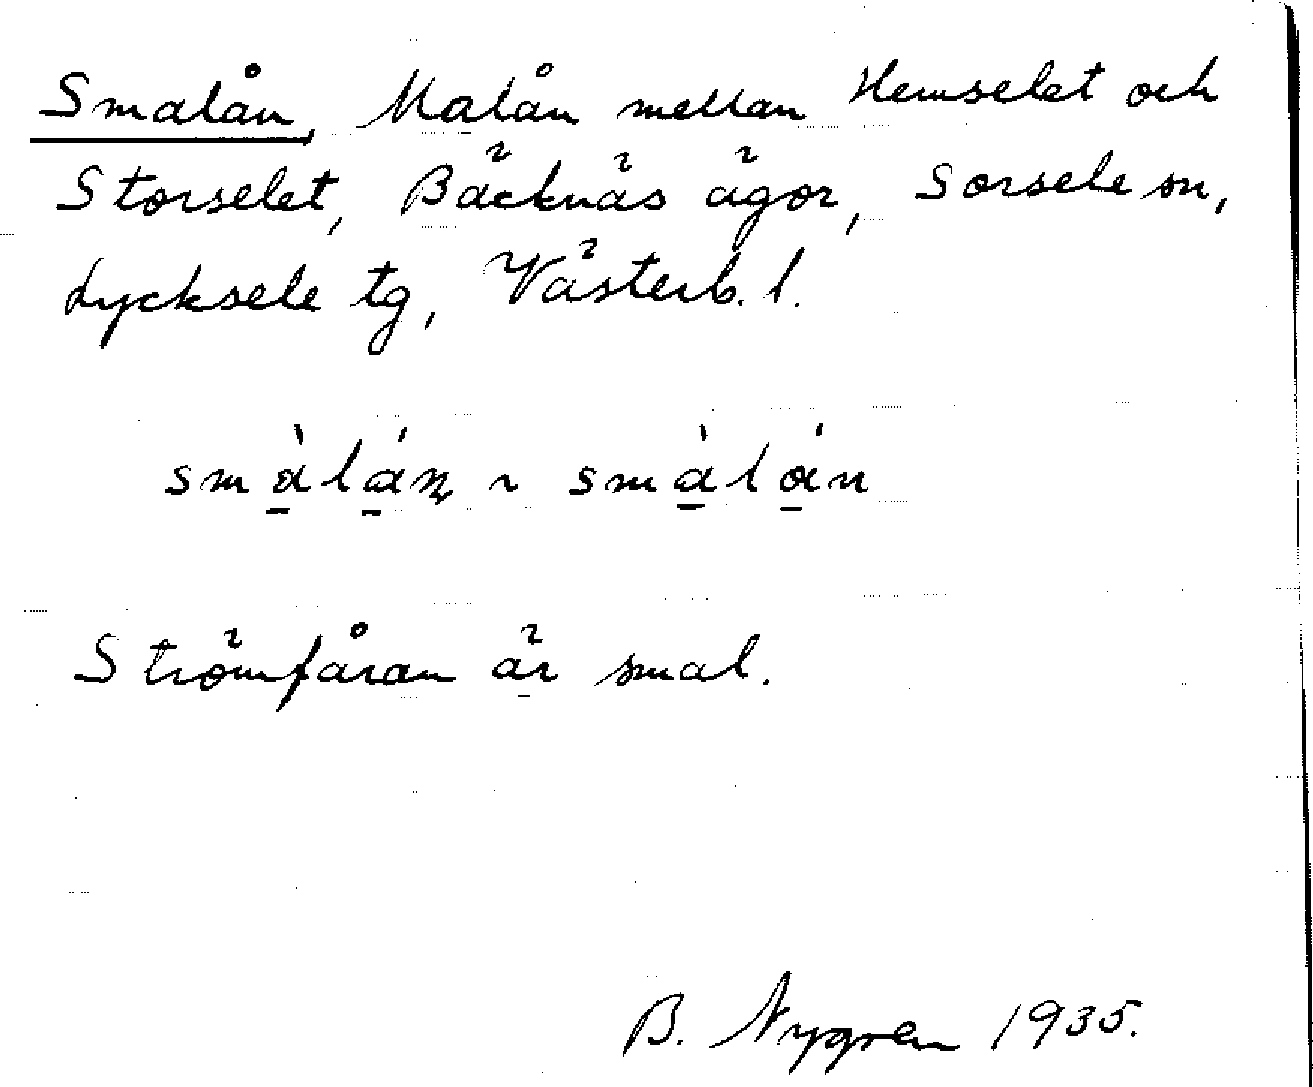 Smalån, Malån mellan Hemselet och
Storselet, Bäcknäs ägor, Sorsele sn,
Lycksele tg, Västerb. l.
smàlán ~ smàlán
Strömfåran är smal.
B. Nygren 1935.